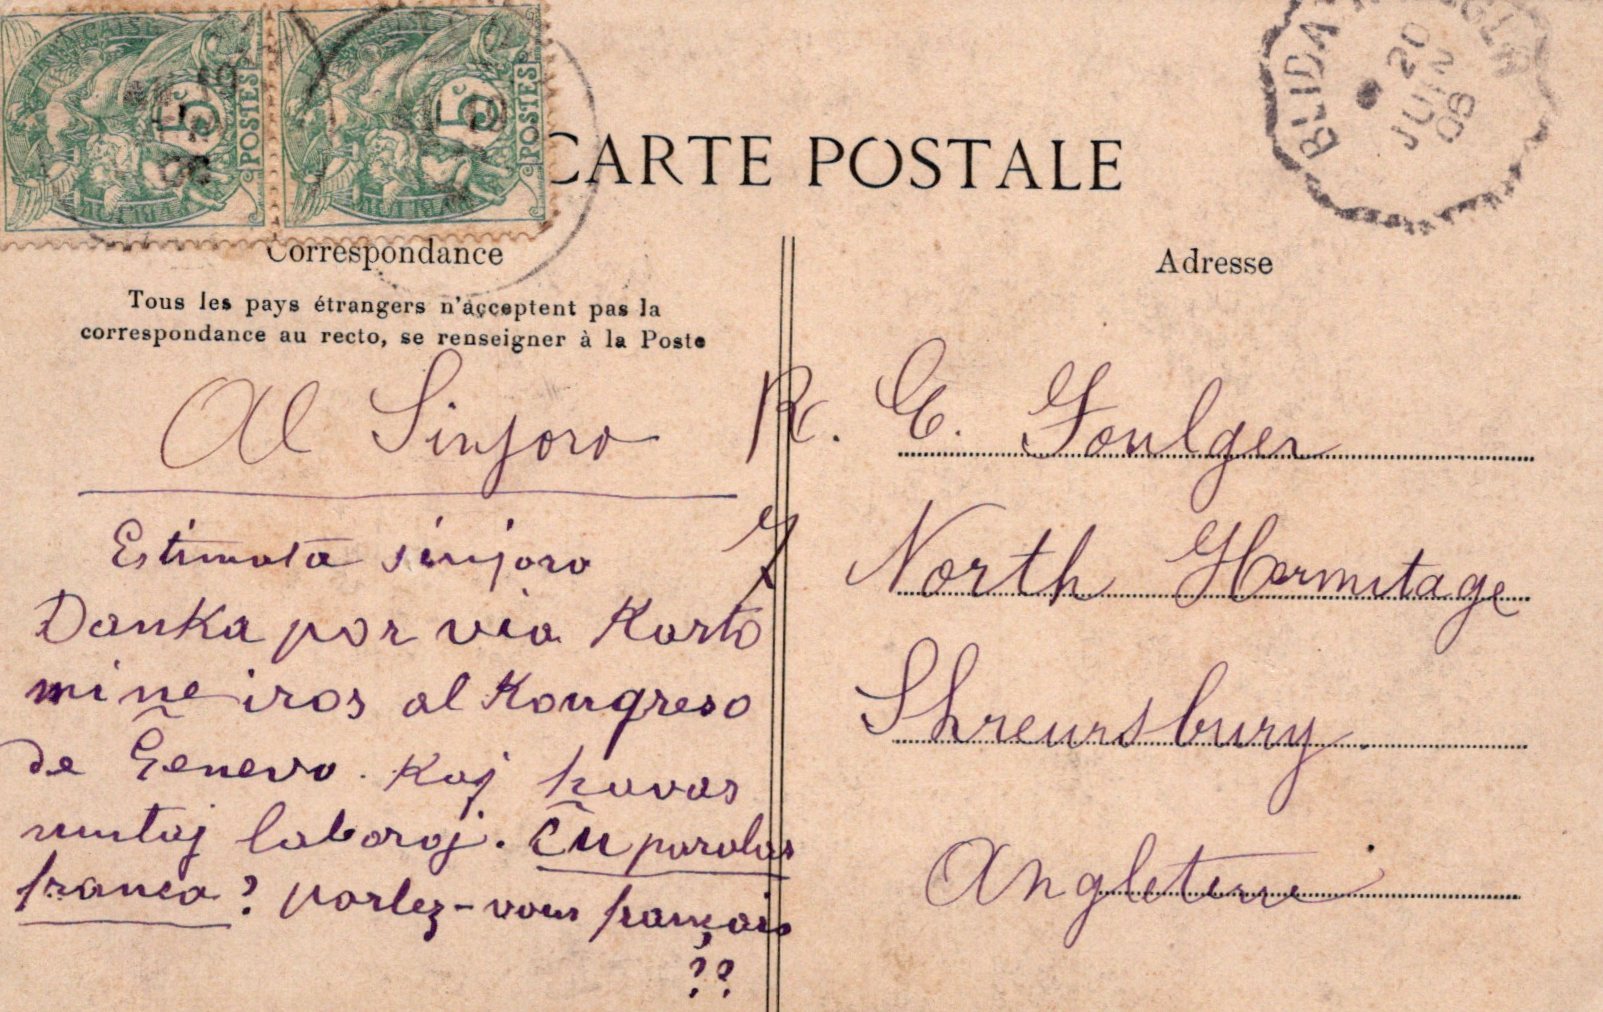 5c
POSTES
5c
POSTES
BLIDA
20
JUIN
06
CARTE POSTALE
Correspondance
Tous les pays étrangers n'acceptent pas la
correspondance au recto, se renseigner à la Poste
Adresse
Al Sinjoro R. E. Foulger
Estimata sinjoro
Danka por via Karto
mi ne iros al Kongreso
de Ĝenevo. Kaj havas
multaj laboroj. Ĉu parolas
franca? parlez-vous français
??
7 North Hermitage
Shreursbury
Angleterre